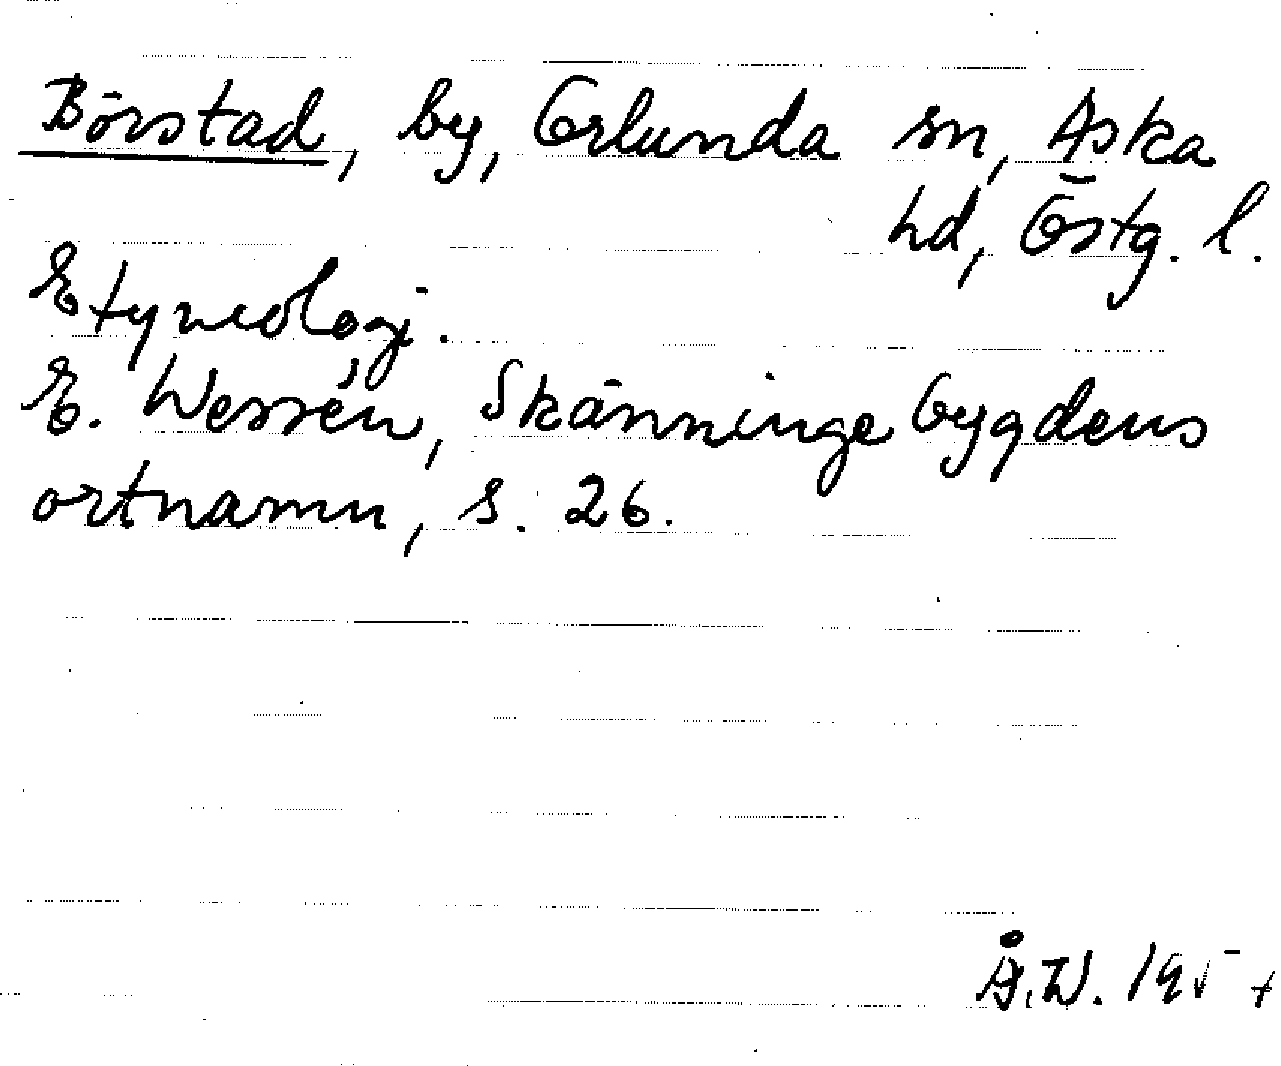 Börstad, by, Örlunda sn, Aska
hd, Östg. l.
Etymologi.
E. Wessén, Skänningebygdens
ortnamn, s. 26.
Å.W. 195